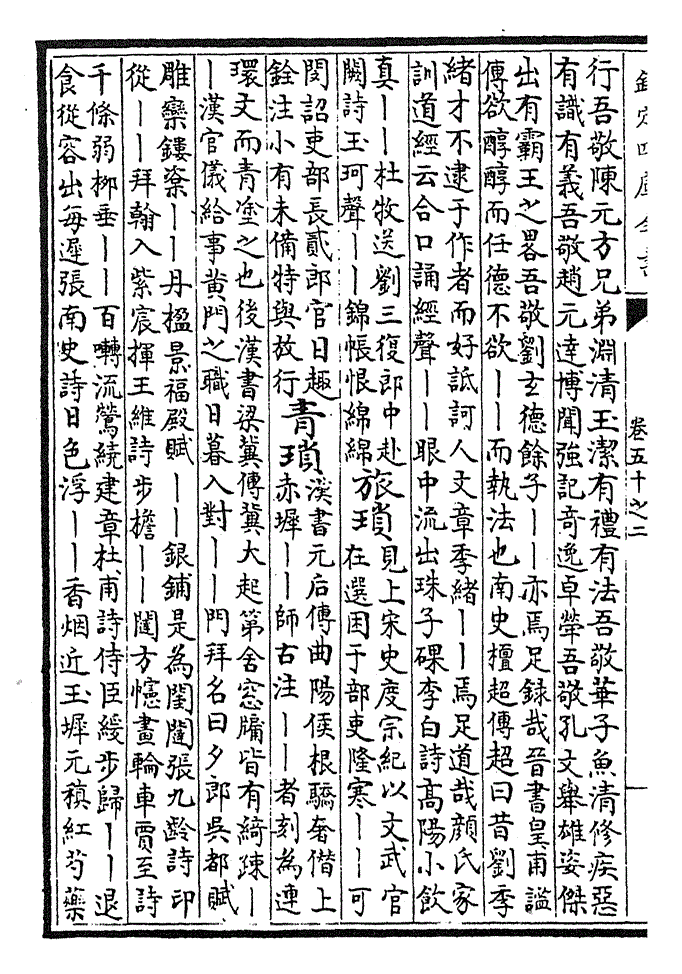 欽定四庫全書
卷五十之二
行吾敬陳元方兄弟淵清玉潔有禮有法吾敬華子魚清修疾惡
有識有義吾敬趙元達博聞強記奇逸卓犖吾敬孔文舉雄姿傑
出有霸王之畧吾敬劉玄德餘子丨丨亦焉足録哉晉書皇甫謐
傳欲醇醇而任德不欲丨丨而執法也南史檀超傳超曰昔劉季
緒才不逮于作者而好詆訶人文章季緒丨丨焉足道哉顔氏家
訓道經云合口誦經聲丨丨眼中流出珠子磥李白詩高陽小飲
真丨丨杜牧送劉三復郎中赴
闕詩玉珂聲丨丨錦帳恨綿綿
旅瑣
見上宋史度宗紀以文武官
在選困于部吏隆寒丨丨可
閔詔吏部長貳郎官日趣
銓注小有未備特與放行
青瑣
漢書元后傳曲陽侯根驕奢僭上
赤墀丨丨師古注丨丨者刻為連
環文而青塗之也後漢書梁冀傳冀大起第舍窓牖皆有綺疎丨
丨漢官儀給事黄門之職日暮入對丨丨門拜名曰夕郎吳都賦
雕欒鏤楶丨丨丹楹景福殿賦丨丨銀鋪是為閨闥張九齡詩印
從丨丨拜翰入紫宸揮王維詩步檐丨丨闥方幰畫輪車賈至詩
千條弱柳垂丨丨百囀流鶯繞建章杜甫詩侍臣緩步歸丨丨退
食從容出每遲張南史詩日色浮丨丨香烟近玉墀元稹紅芍藥